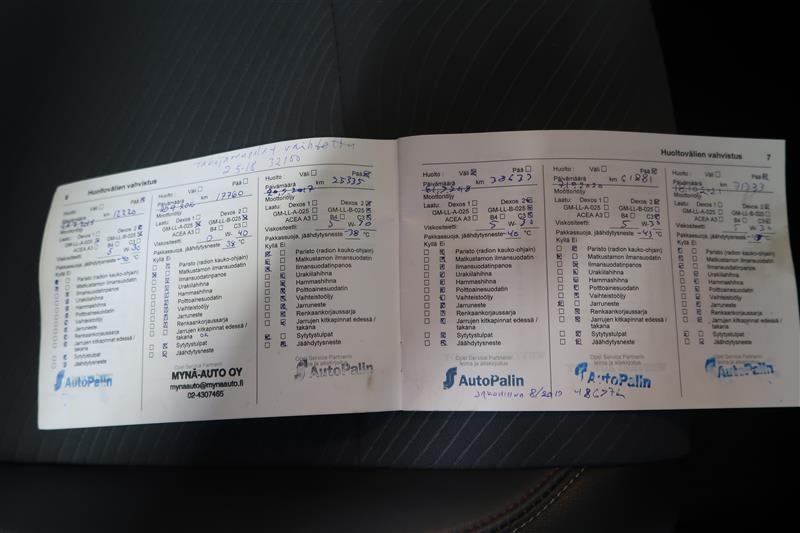 6
Huoltovälien vahvistus
vaihdettu
2.5.18 32100
Huolto: Väli Pää
Päivämäärä km 12330
Moottoriöljy
Laatu: Dexos 1 Dexos 2
GM-LL-A-025 GM-LL-B-025
ACEA A3 B4 C3
Viskositeetti
Pakkassuoja, jäähdytysneste -40 °C
Kyllä Ei
Paristo (radion kauko-ohjain)
Matkustamon ilmansuodatin
Ilmansuodatinpanos
Urakilahihna
Hammashihna
Polttoainesuodatin
Vaihteistoöljy
Jarruneste
Renkaankorjaussarja
Jarrujen kitkapinnat edessä /
takana
Sytytystulpat
Jäähdytysneste
Opel Service Partnerin
AutoPalin
Huolto: Väli Pää
Päivämäärä km 17760
Moottoriöljy
Laatu: Dexos 1 Dexos 2
GM-LL-A-025 GM-LL-B-025
ACEA A3 B4 C3
Viskositeetti 0 W- 40
Pakkassuoja, jäähdytysneste -38 °C
Kyllä Ei
Paristo (radion kauko-ohjain)
Matkustamon ilmansuodatin
Ilmansuodatinpanos
Urakilahihna
Hammashihna
Polttoainesuodatin
Vaihteistoöljy
Jarruneste
Renkaankorjaussarja
Jarrujen kitkapinnat edessä /
takana OK
Sytytystulpat
Jäähdytysneste
Opel Service Partnerin
MYNÄ-AUTO OY
mynaauto@mynaauto.fi
02-4307465
Huolto: Väli Pää
Päivämäärä km 25335
Moottoriöljy
Laatu: Dexos 1 Dexos 2
GM-LL-A-025 GM-LL-B-025
ACEA A3 B4 C3
Viskositeetti 5 W- 30
Pakkassuoja, jäähdytysneste -38 °C
Kyllä Ei
Paristo (radion kauko-ohjain)
Matkustamon ilmansuodatin
Ilmansuodatinpanos
Urakilahihna
Hammashihna
Polttoainesuodatin
Vaihteistoöljy
Jarruneste
Renkaankorjaussarja
Jarrujen kitkapinnat edessä /
takana
Sytytystulpat
Jäähdytysneste
Opel Service Partnerin
leima ja allekirjoitus
AutoPalin
Huoltovälien vahvistus
7
Huolto: Väli Pää
Päivämäärä km
Moottoriöljy
Laatu: Dexos 1 Dexos 2
GM-LL-A-025 GM-LL-B-025
ACEA A3 B4 C3
Viskositeetti 5 W- 30
Pakkassuoja, jäähdytysneste -40 °C
Kyllä Ei
Paristo (radion kauko-ohjain)
Matkustamon ilmansuodatin
Ilmansuodatinpanos
Urakilahihna
Hammashihna
Polttoainesuodatin
Vaihteistoöljy
Jarruneste
Renkaankorjaussarja
Jarrujen kitkapinnat edessä /
takana
Sytytystulpat
Jäähdytysneste
Opel Service Partnerin
leima ja allekirjoitus
AutoPalin
8/2019
Huolto: Väli Pää
Päivämäärä km 61881
Moottoriöljy
Laatu: Dexos 1 Dexos 2
GM-LL-A-025 GM-LL-B-025
ACEA A3 B4 C3
Viskositeetti 5 W-
Pakkassuoja, jäähdytysneste -43 °C
Kyllä Ei
Paristo (radion kauko-ohjain)
Matkustamon ilmansuodatin
Ilmansuodatinpanos
Urakilahihna
Hammashihna
Polttoainesuodatin
Vaihteistoöljy
Jarruneste
Renkaankorjaussarja
Jarrujen kitkapinnat edessä /
takana
Sytytystulpat
Jäähdytysneste
Opel Service Partnerin
leima ja allekirjoitus
AutoPalin
Huolto: Väli Pää
Päivämäärä km 71333
Moottoriöljy
Laatu: Dexos 1 Dexos 2
GM-LL-A-025 GM-LL-B-025
ACEA A3 B4 C3
Viskositeetti 5 W-
Pakkassuoja, jäähdytysneste °C
Kyllä Ei
Paristo (radion kauko-ohjain)
Matkustamon ilmansuodatin
Ilmansuodatinpanos
Urakilahihna
Hammashihna
Polttoainesuodatin
Vaihteistoöljy
Jarruneste
Renkaankorjaussarja
Jarrujen kitkapinnat edessä /
takana
Sytytystulpat
Jäähdytysneste
Opel Service Partnerin
leima ja allekirjoitus
AutoPalin